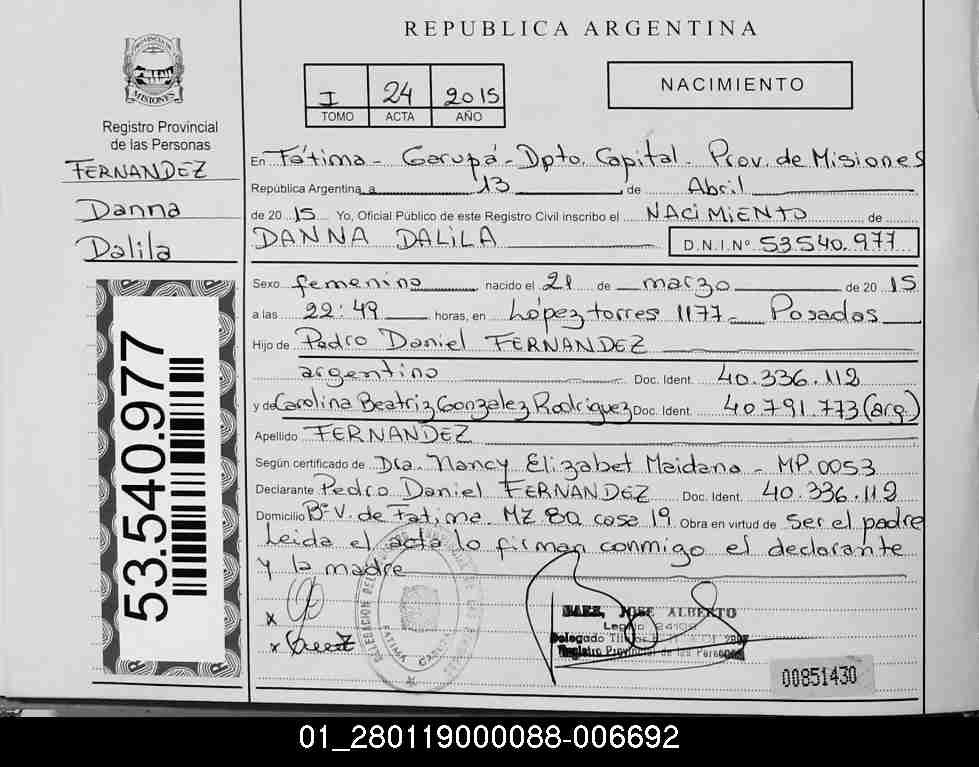 REPUBLICA ARGENTINA
PROVINCIA DE
MISIONES
Registro Provincial
de las Personas
FERNANDEZ
Danna
Dalila
53.540.977
I 24 2015
TOMO ACTA AÑO
NACIMIENTO
En Fátima - Garupá - Dpto. Capital - Prov. de Misiones
República Argentina, a 13 de Abril
de 2015 Yo, Oficial Público de este Registro Civil inscribo el NACIMIENTO de
DANNA DALILA D.N.I. Nº 53.540.977
Sexo femenino nacido el 21 de marzo de 2015
a las 22:49 horas, en López torres 1177 - Posadas
Hijo de Pedro Daniel FERNANDEZ
argentino Doc. Ident. 40.336.112
y de Carolina Beatriz Gonzalez Rodriguez Doc. Ident. 40.791.773 (arg.)
Apellido FERNANDEZ
Según certificado de Dra. Nancy Elizabet Maidana - MP.0053
Declarante Pedro Daniel FERNANDEZ Doc. Ident. 40.336.112
Domicilio Bº V. de Fatima MZ 80 casa 19 Obra en virtud de ser el padre
Leida el acta lo firman conmigo el declarante
y la madre
x
x
DELEGACION DEL
FATIMA
JOSE ALBERTO
Delegado
Registro Provincial de las Personas
00851430
01_280119000088-006692